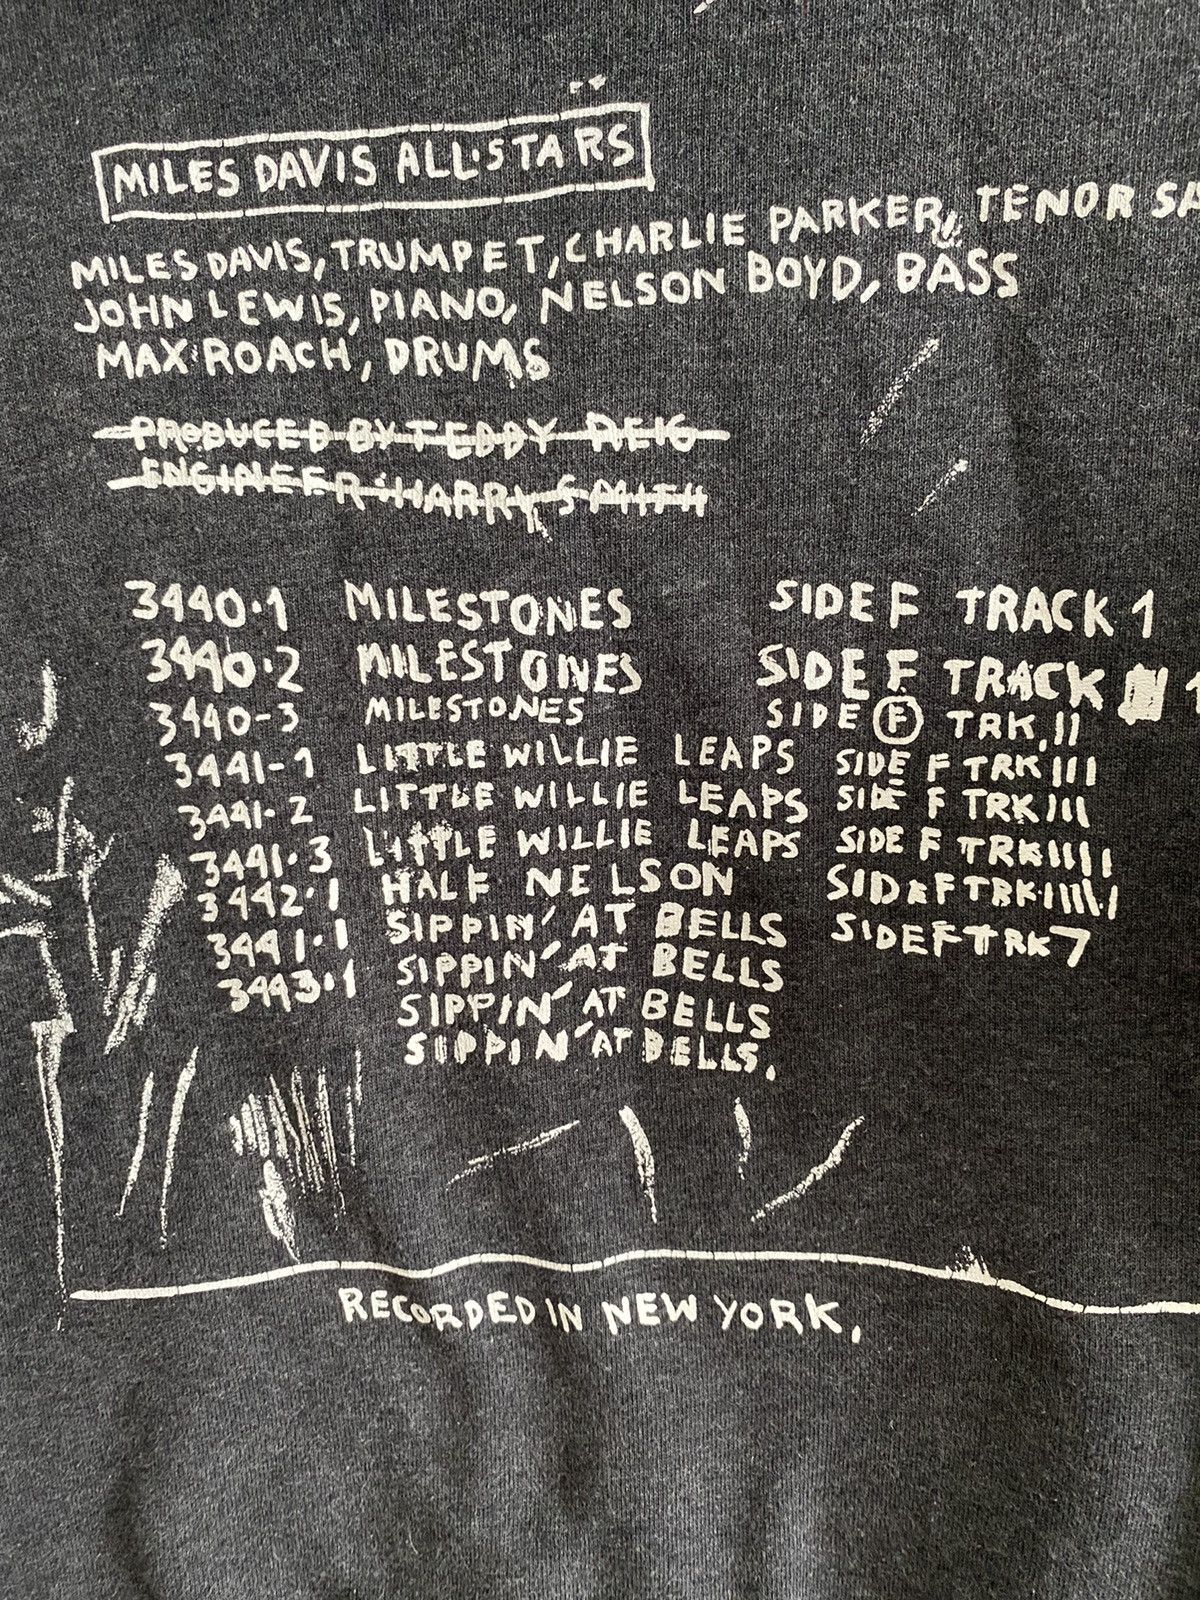 MILES DAVIS ALL·STARS
MILES DAVIS, TRUMPET, CHARLIE PARKER, TENOR SA
JOHN LEWIS, PIANO, NELSON BOYD, BASS
MAX ROACH, DRUMS
PRODUCED BY TEDDY REIG
ENGINEER: HARRY SMITH
3440·1 MILESTONES SIDE F TRACK 1
3440·2 MILESTONES SIDE F TRACK 1
3440-3 MILESTONES SIDE F TRK. II
3441-1 LITTLE WILLIE LEAPS SIDE F TRK III
3441·2 LITTLE WILLIE LEAPS SIDE F TRK III
3441·3 LITTLE WILLIE LEAPS SIDE F TRK IIII
3442·1 HALF NELSON SIDE F TRK·IIIII
3441·1 SIPPIN' AT BELLS SIDE F TRK 7
3443·1 SIPPIN' AT BELLS
SIPPIN' AT BELLS
SIPPIN' AT BELLS.
RECORDED IN NEW YORK.